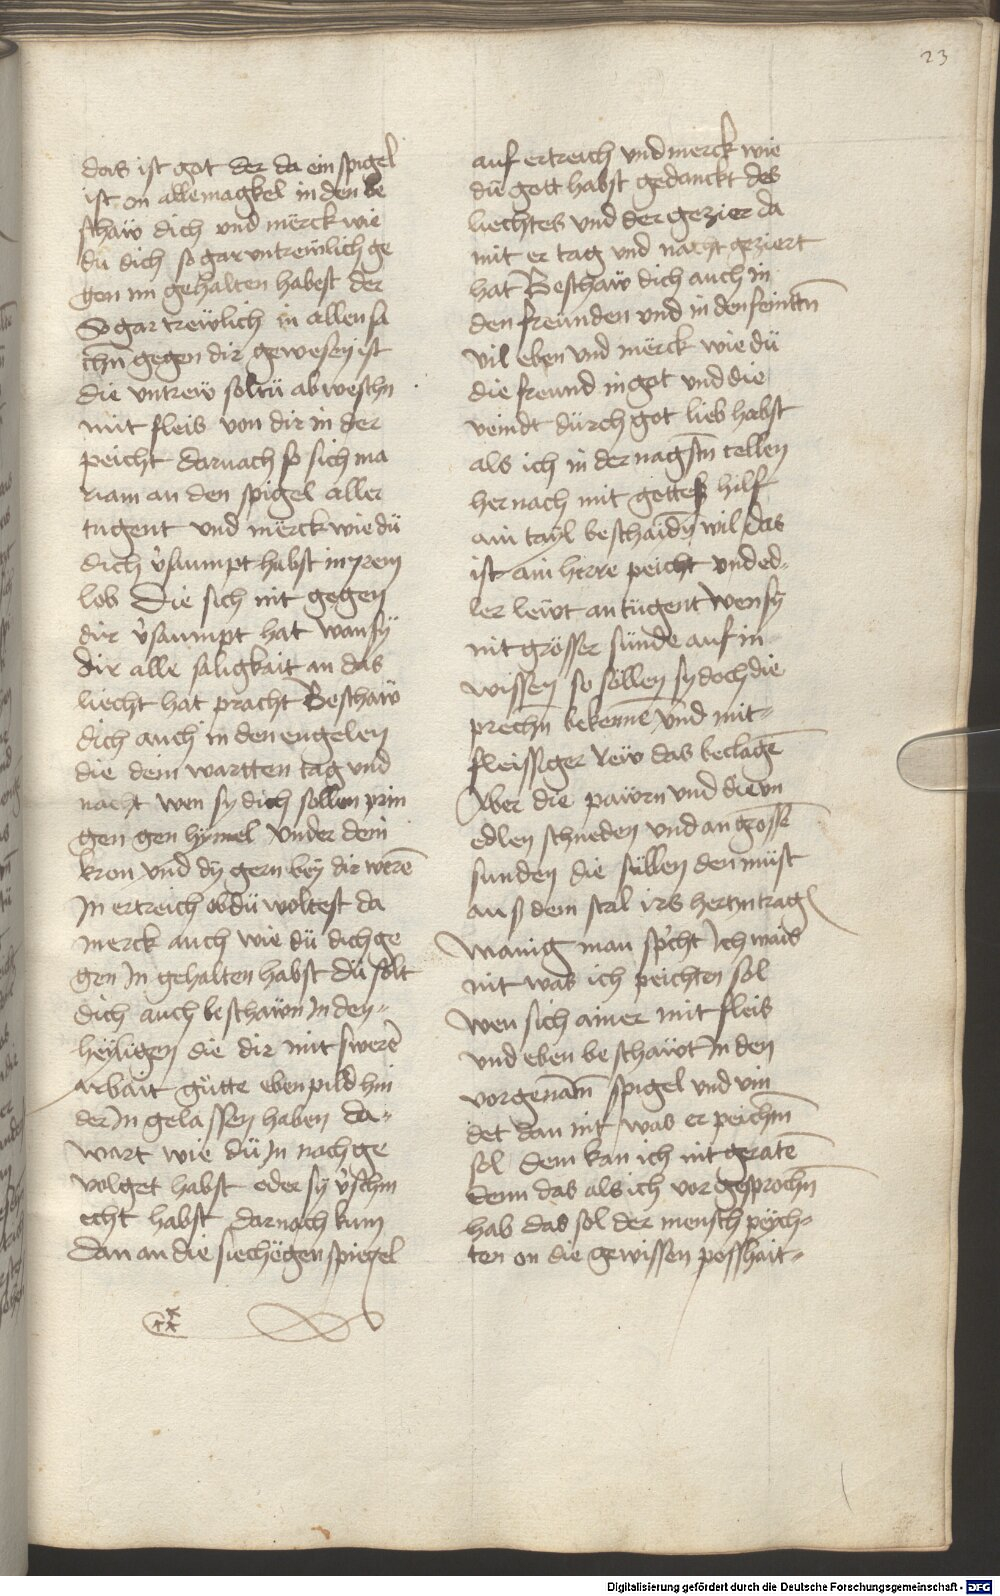 23
das ist got der da ein spigel
ist on alle magkel in den be
schaẅ dich vnd mërck wie
du dich so gar vntrewlich ge
gen im gehalten habest der
So gar trewlich in allen sa
chn̄ gegen dir gewesen ist
die vntrew soltu ab weschn
mit fleis von dir in der
peicht darnach so sich ma
riam an den spigel aller
tugent vnd mërck wie dü
dich v̓saumpt habst in yrem
lob Die sich nit gegen
dir v̓saumpt hat wan sÿ
dir alle saligkait an das
liecht hat pracht Beschaẅ
dich auch in den engelen
die dein wartten tag vnd
nacht wen sy dich sollen prin
gen gen hymel vnder dein
kron vnd dy gern beÿ dir werē
Jn ertreich ob dü woltest da
merck auch wie dü dich ge
gen Jn gehalten habst dü solt
dich auch beschaẅn Jn den-
heÿligen die dir mit swerē
arbait gütte ebenpild hin
der Jn gelassen haben da-
wart wie dü Jn nach ge
volget habst oder sy v̓schm
echt habst darnach kum
dan an die siechëgen spiegel
auf ertreich vnd merck wie
dü gott habst gedanckt des
liechtes vnd der gezier da
mit er tag vnd nacht geziert
hat Beschaẅ dich auch in
den freunden vnd in den feintn̄
vil eben vnd mërck wie dü
die freund in got vnd die
veindt dürch got lieb habst
als ich in der nagstn̄ cellen
her nach mit gottes hilf
ain tayl beschaidn̄ wil das
ist ain herre peicht vnd ed-
ler leẅt an tügent wen sy
nit grösser sünde auf in
wissen so söllen sy doch die
prechn̄ bekennē vnd mit-
fleissiger reẅ das beclagē
Aber die paẅrn vnd die vn
edlen schneden vnd an grossē
sunden die süllen den müst
auß dem stal irs hertzn trag
Manig man sp̓cht Jch wais
nit was ich peichten sol
Wen sich ainer mit fleis
vnd eben beschaẅt Jn den
vorgenātn̄ spigel vnd vin
det dan nit was er peichn̄
sol dem kan ich nit geratē
denn das als ich vor gesprochn̄
hab das sol der mensch peÿch-
ten on die gewissen posshait-
Digitalisierung gefördert durch die Deutsche Forschungsgemeinschaft - DFG